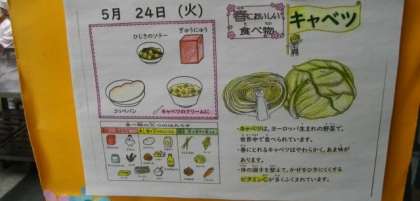 5月 24日 (火)
ひじきのソテー
ぎゅうにゅう
コッペパン
キャベツのクリームに
春においしい
食べ物
キャベツ
・キャベツは、ヨーロッパ生まれの野菜で、
世界中で食べられています。
・春にとれるキャベツはやわらかく、あま味が
あります。
・体の調子を整えて、かぜをひきにくくする
ビタミンCが多くふくまれています。